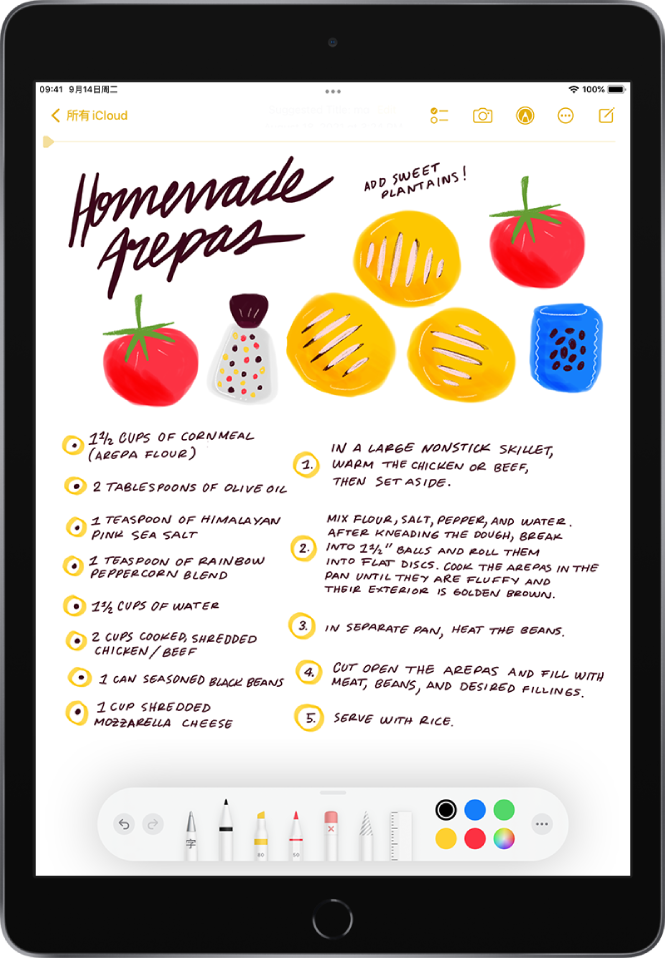 09:41 9月14日周二
100%
所有 iCloud
Homemade
Arepas
ADD SWEET
PLANTAINS!
1 1/2 CUPS OF CORNMEAL
(AREPA FLOUR)
2 TABLESPOONS OF OLIVE OIL
1 TEASPOON OF HIMALAYAN
PINK SEA SALT
1 TEASPOON OF RAINBOW
PEPPERCORN BLEND
1 1/2 CUPS OF WATER
2 CUPS COOKED, SHREDDED
CHICKEN/BEEF
1 CAN SEASONED BLACK BEANS
1 CUP SHREDDED
MOZZARELLA CHEESE
1. IN A LARGE NONSTICK SKILLET,
WARM THE CHICKEN OR BEEF,
THEN SET ASIDE.
2. MIX FLOUR, SALT, PEPPER, AND WATER.
AFTER KNEADING THE DOUGH, BREAK
INTO 1 1/2" BALLS AND ROLL THEM
INTO FLAT DISCS. COOK THE AREPAS IN THE
PAN UNTIL THEY ARE FLUFFY AND
THEIR EXTERIOR IS GOLDEN BROWN.
3. IN SEPARATE PAN, HEAT THE BEANS.
4. CUT OPEN THE AREPAS AND FILL WITH
MEAT, BEANS, AND DESIRED FILLINGS.
5. SERVE WITH RICE.
字
80
50